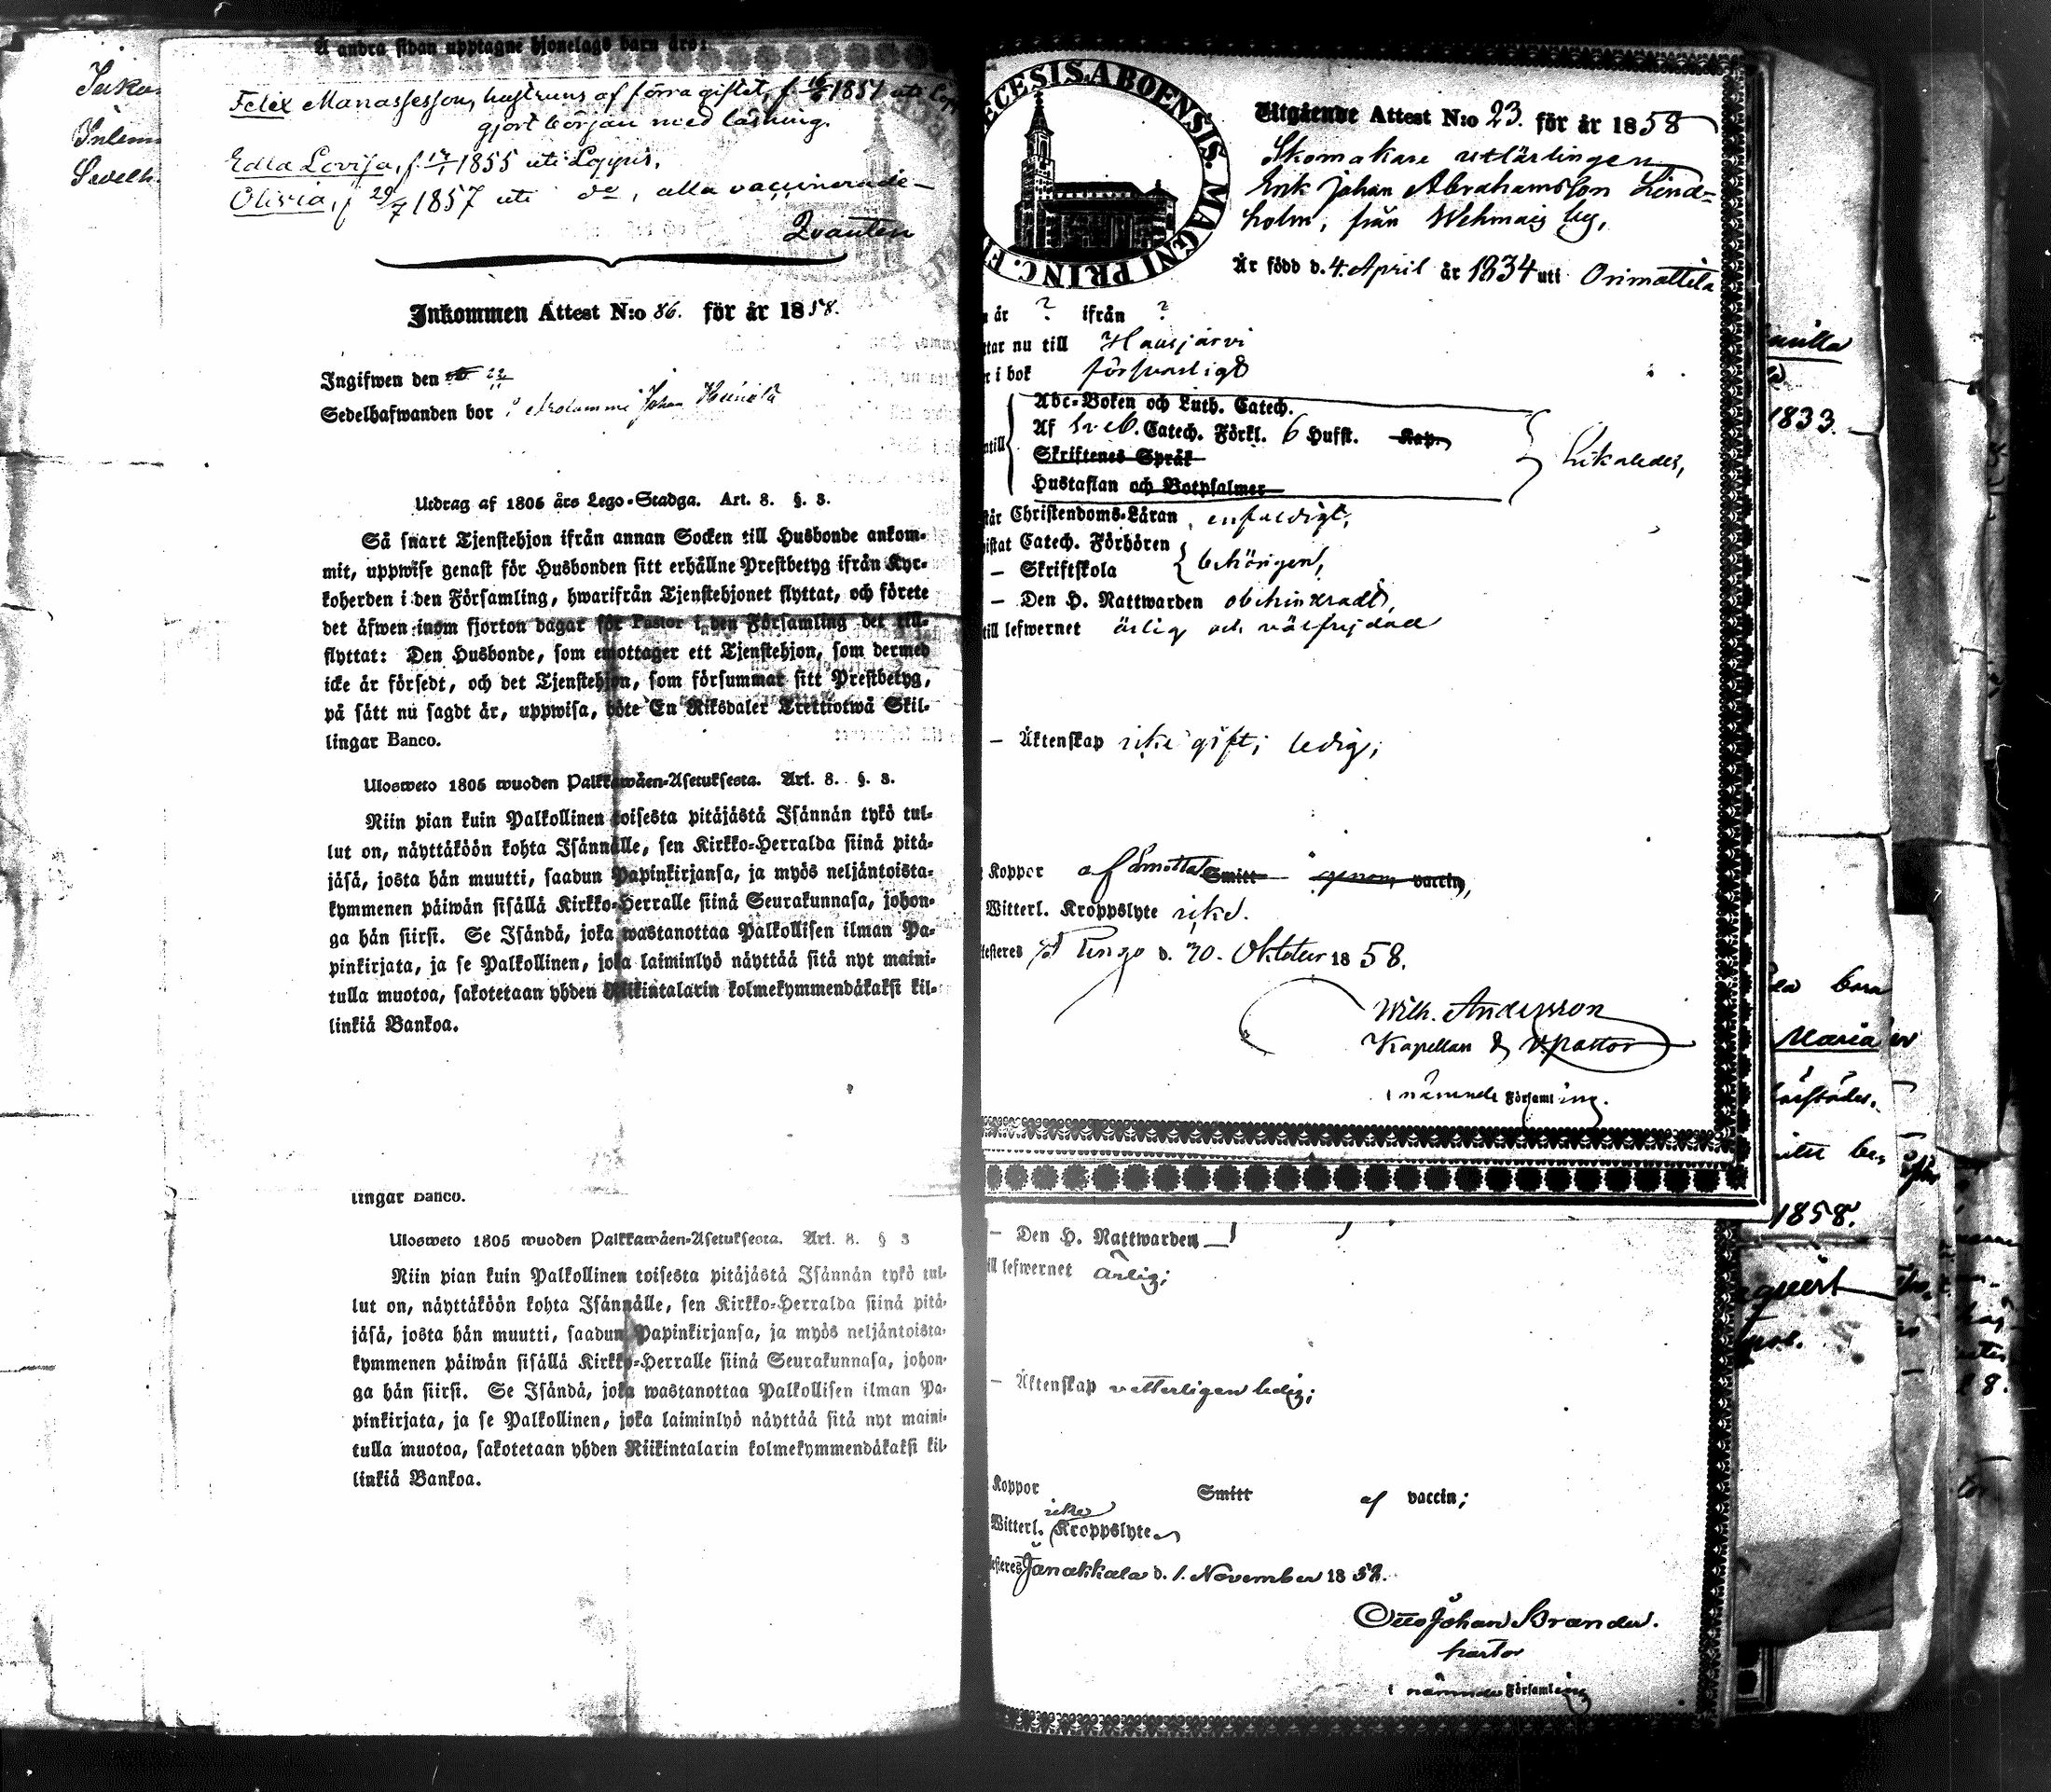 Å andra sidan upptagne hjonelags barn äro:
Felix Manassesson, hustruns af förra giftet, f. 1851 uti
gjort början med läsning.
Edla Lovisa, f. 1855 uti Loppis.
Olivia, f 29/7 1857 uti do, alla vaccinerade
Qvanten
Inkommen Attest N:o 86. för år 1858.
Ingifwen den
Sedelhafwanden bor i Johan
Utdrag af 1805 års Lego-Stadga. Art. 8. §. 3.
Så snart Tjenstehjon ifrån annan Socken till Husbonde ankom-
mit, uppwise genast för Husbonden sitt erhållne Prestbetyg ifrån Kyr-
koherden i den Församling, hwarifrån Tjenstehjonet flyttat, och förete
det äfwen inom fjorton dagar för Pastor i den Församling det till-
flyttat: Den Husbonde, som emottager ett Tjenstehjon, som dermed
icke är försedt, och det Tjenstehjon, som försummar sitt Prestbetyg,
på sätt nu sagdt är, uppwisa, böte En Riksdaler Trettiotwå Skil-
lingar Banco.
Ulosweto 1805 wuoden Palkkawäen-Asetuksesta. Art. 8. §. 3.
Niin pian kuin Palkollinen toisesta pitäjästä Isännän tykö tul-
lut on, näyttäköön kohta Isännälle, sen Kirkko-Herralda siinä pitä-
jäsä, josta hän muutti, saadun Papinkirjansa, ja myös neljäntoista-
kymmenen päiwän sisällä Kirkko-Herralle siinä Seurakunnasa, johon-
ga hän siirsi. Se Isändä, joka wastanottaa Palkollisen ilman Pa-
pinkirjata, ja se Palkollinen, joka laiminlyö näyttää sitä nyt maini-
tulla muotoa, sakotetaan yhden Riikintalarin kolmekymmendäkaksi kil-
linkiä Bankoa.
lingar Banco.
Ulosweto 1805 wuoden Palkkawäen-Asetuksesta. Art. 8. § 3
Niin pian kuin Palkollinen toisesta pitäjästä Isännän tykö tul-
lut on, näyttäköön kohta Isännälle, sen Kirkko-Herralda siinä pitä-
jäsä, josta hän muutti, saadun Papinkirjansa, ja myös neljäntoista-
kymmenen päiwän sisällä Kirkko-Herralle siinä Seurakunnasa, johon-
ga hän siirsi. Se Isändä, joka wastanottaa Palkollisen ilman Pa-
pinkirjata, ja se Palkollinen, joka laiminlyö näyttää sitä nyt maini-
tulla muotoa, sakotetaan yhden Riikintalarin kolmekymmendäkaksi kil-
linkiä Bankoa.
ECESIS ABOENSIS. MAGNI PRINC. F
Utgående Attest N:o 23. för år 1858
Skomakare utlärlingen
Erik Johan Abrahamsson Lind-
holm, från Wehmais by,
Är född d. 4. April år 1834 uti Orimattila
år ? ifrån ?
ttar nu till Hausjärvi
i bok försvarligt
Abc-Boken och Luth. Catech.
Af Sveb. Catech. Förkl. 6 Hufst. Kap.
Skriftenes Språk
Hustaflan och Botpsalmer
Likaledes,
står Christendoms-Läran enfaldigt,
istat Catech. Förhören
– Skriftskola
behörigen,
– Den H. Nattwarden obehindradt,
till lefwernet ärlig och välfrejdad
– Äktenskap icke gift; ledig;
Koppor af Smitta Smitt genom vaccin,
Witterl. Kroppslyte icke.
testeres d. 30. Oktober 1858.
Wilh. Andersson
Kapellan & v. pastor
i nämnde Församling.
– Den H. Nattwarden
ill lefwernet ärlig;
– Äktenskap vetterligen ledig;
Koppor Smitt af vaccin;
Witterl. icke Kroppslyte
testeres Janakkala d. 1. November 1858.
Otto Johan Brander.
pastor
i nämnde Församling
1833.
Maria
1858.